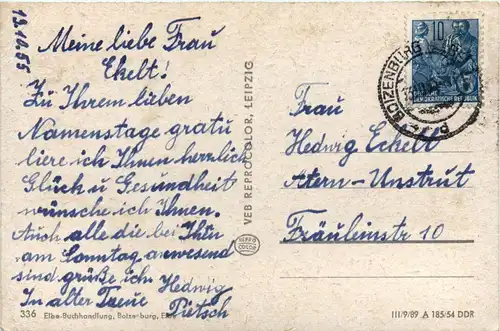 13.10.55
Meine liebe Frau
Ekelt!
Zu Ihrem lieben
Namenstage gratu
liere ich Ihnen herzlich
Glück u Gesundheit
wünsche ich Ihnen.
Auch alle die bei Ihnen
am Sonntag anwesend
sind grüße ich. Hedwig
In alter Treue Pietsch
336 Elbe-Buchhandlung, Boizenburg, Elbe
VEB REPROCOLOR, LEIPZIG
REPRO
COLOR
10
DEUTSCHE DEMOKRATISCHE REPUBLIK
BOIZENBURG
Frau
Hedwig Eckelt
Artern-Unstrut
Fräuleinstr 10
III/9/89 A 185/54 DDR